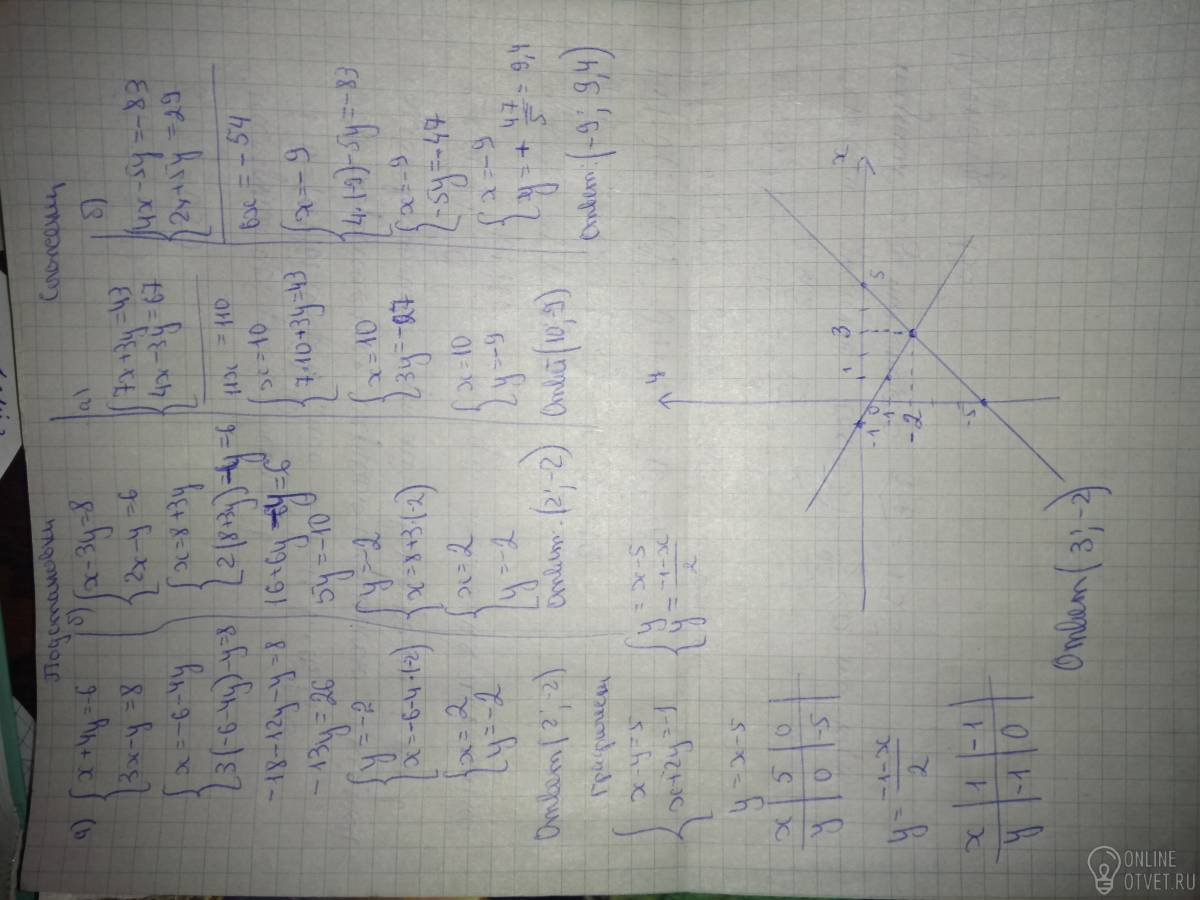 Подстановки
а) { x+4y=-6
3x-y=8
{ x=-6-4y
3(-6-4y)-y=8
-18-12y-y=8
-13y=26
{ y=-2
x=-6-4·(-2)
{ x=2
y=-2
Ответ(2;-2)
б) { x-3y=8
2x-y=6
{ x=8+3y
2(8+3y)-y=6
16+6y-y=6
5y=-10
{ y=-2
x=8+3·(-2)
{ x=2
y=-2
Ответ:(2;-2)
Сложения
а) { 7x+3y=43
4x-3y=67
11x=110
{ x=10
7·10+3y=43
{ x=10
3y=-27
{ x=10
y=-9
Ответ(10;-9)
б) { 4x-5y=-83
2x+5y=29
6x=-54
{ x=-9
4·(-9)-5y=-83
{ x=-9
-5y=-47
{ x=-9
y=+47/5=9,4
Ответ:(-9; 9,4)
{ x-y=5
x+2y=-1
{ y=x-5
y=-1-x/2
y=x-5
x | 5 | 0
y | 0 | -5
y=-1-x/2
x | 1 | -1
y | -1 | 0
y
x
-1 0 1 3 5
-1
-2
-5
Ответ(3;-2)
ONLINE
OTVET.RU